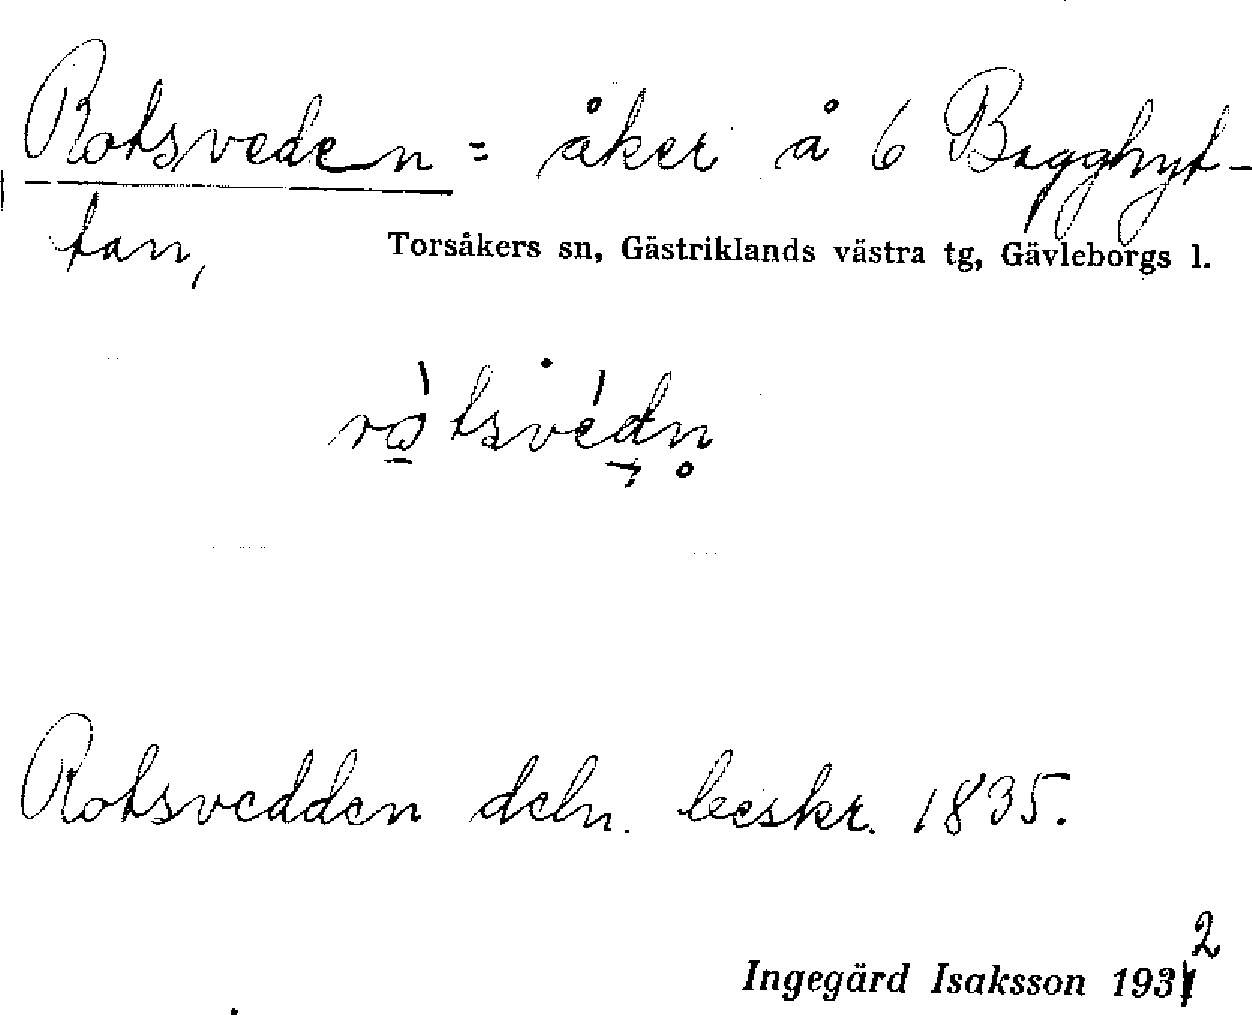 Rotsveden = åker å 6 Bagghyt-
tan,
Torsåkers sn, Gästriklands västra tg, Gävleborgs l.
Rotsvedden deln. beskr. 1835.
Ingegärd Isaksson 1932